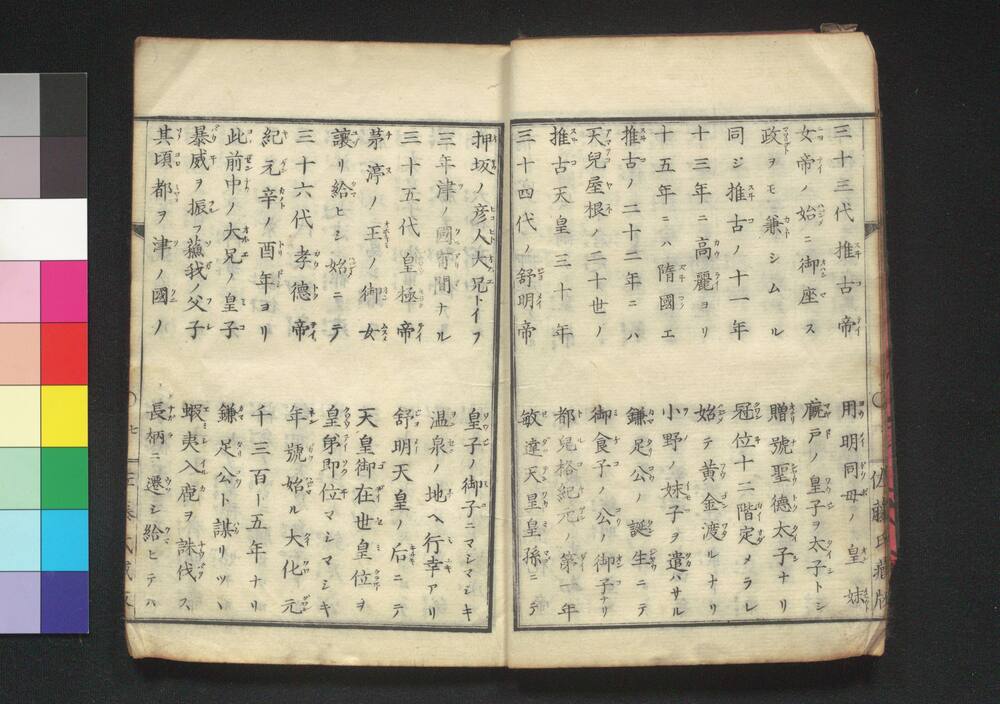 三十三代推古帝　用明同母ノ皇妹
女帝ノ始ニ御座ス　廐戸ノ皇子ヲ太子トシ
政ヲモ兼シムル　贈號聖德太子ナリ
同ジ推古ノ十一年　冠位十二階定メラレ
十三年ニ高麗ヨリ　始テ黄金渡ルナリ
十五年ニハ隋國エ　小野ノ妹子ヲ遣ハサル
推古ノ二十二年ニハ　鎌足公ノ誕生ニテ
天兒屋根ノ二十世ノ　御食子ノ公ノ御子ナリ
推古天皇三十年　都兒格紀元ノ第一年
三十四代ノ舒明帝　敏達天皇皇孫ニテ
押坂ノ彦人大兄トイフ　皇子ノ御子ニマシマシキ
三年津ノ國有間ナル　温泉ノ地ヘ行幸アリ
三十五代皇極帝　舒明天皇ノ后ニテ
茅渟ノ王ノ御女　天皇御在世皇位ヲ
讓リ給ヒシ始ニテ　皇弟即位マシマシキ
三十六代孝德帝　年號始ル大化元
紀元辛ノ酉年ヨリ　千三百ト五年ナリ
此前中ノ大兄ノ皇子　鎌足公ト謀リツヽ
暴威ヲ振フ蘓我ノ父子　蝦夷入鹿ヲ誅伐ス
其頃都ヲ津ノ國ノ　長柄ニ遷シ給ヒテハ